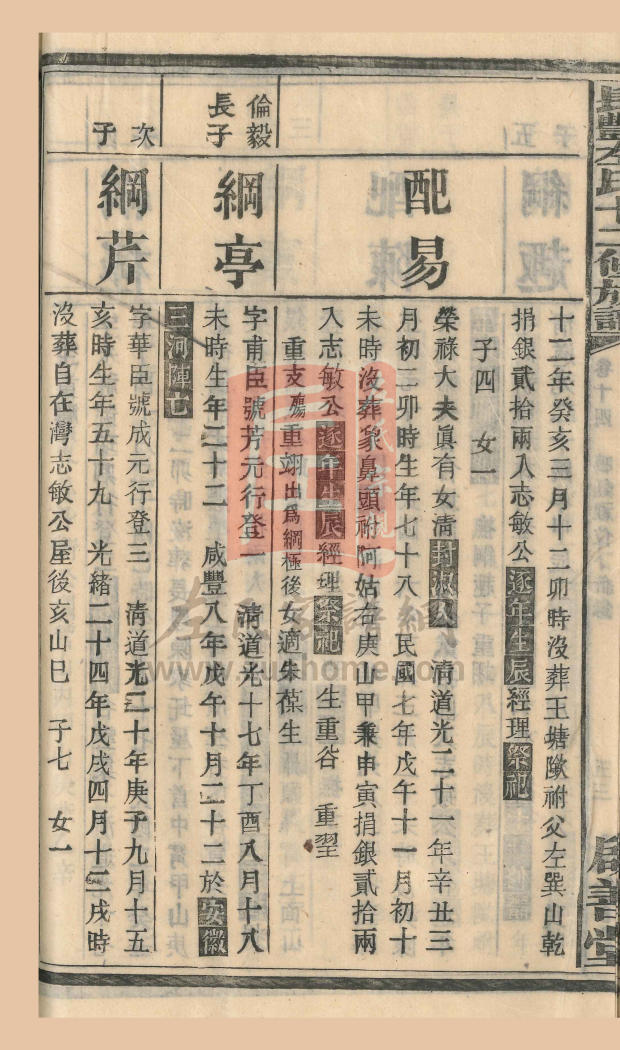 十二年癸亥三月十二卯時沒葬王塘墩祔父左巽山乾
捐銀貳拾兩入志敏公逐年生辰經理祭祀
子四 女一
配易
榮祿大夫眞有女淸封淑人 淸道光二十一年辛丑三
月初二卯時生年七十八 民國七年戊午十一月初十
未時沒葬象鼻頭祔阿姑右庚山甲兼申寅捐銀貳拾兩
入志敏公逐年生辰經理祭祀 生重谷 重翌
重支殤重翊出爲綱極後女適朱葆生
倫毅
長子
綱亭
字甫臣號芳元行登二 淸道光十七年丁酉八月十八
未時生年二十二 咸豐八年戊午十月二十二於安徽
三河陣亡
次
子
綱芹
字華臣號成元行登三 淸道光二十年庚子九月十五
亥時生年五十九 光緒二十四年戊戌四月十三戌時
沒葬自在灣志敏公屋後亥山巳 子七 女一
卷十四
啟善堂
www.zuojhome.com